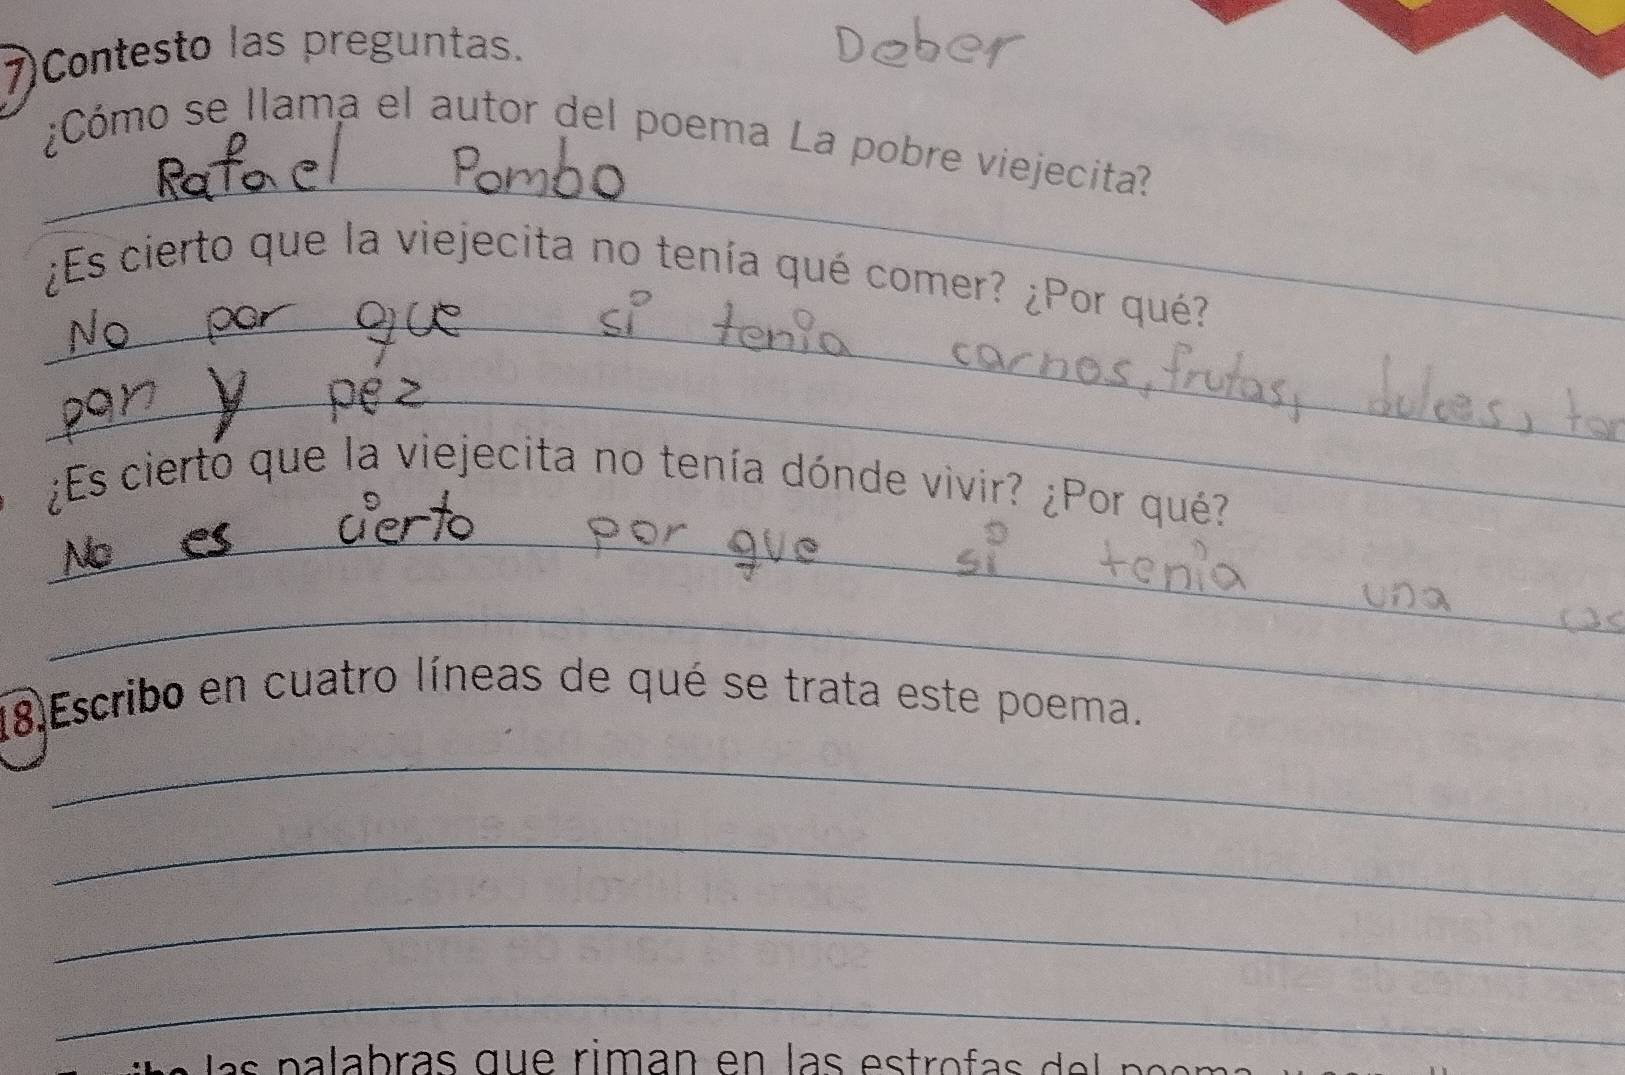 7) Contesto las preguntas. Deber
¿Cómo se llama el autor del poema La pobre viejecita?
Rafael Pombo
¿Es cierto que la viejecita no tenía qué comer? ¿Por qué?
No por que si tenia carnes, frutas, dulces, tor
pan y péz
¿Es cierto que la viejecita no tenía dónde vivir? ¿Por qué?
No es cierto por que si tenia una cas
18) Escribo en cuatro líneas de qué se trata este poema.
las palabras que riman en las estrofas del